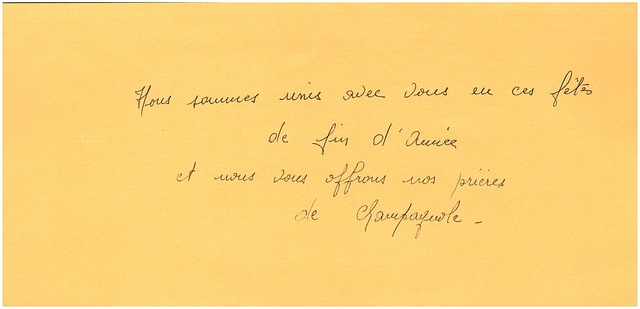 Nous sommes unis avec vous en ces fêtes
de fin d'Année
et nous vous offrons nos prières
de Champagnole -